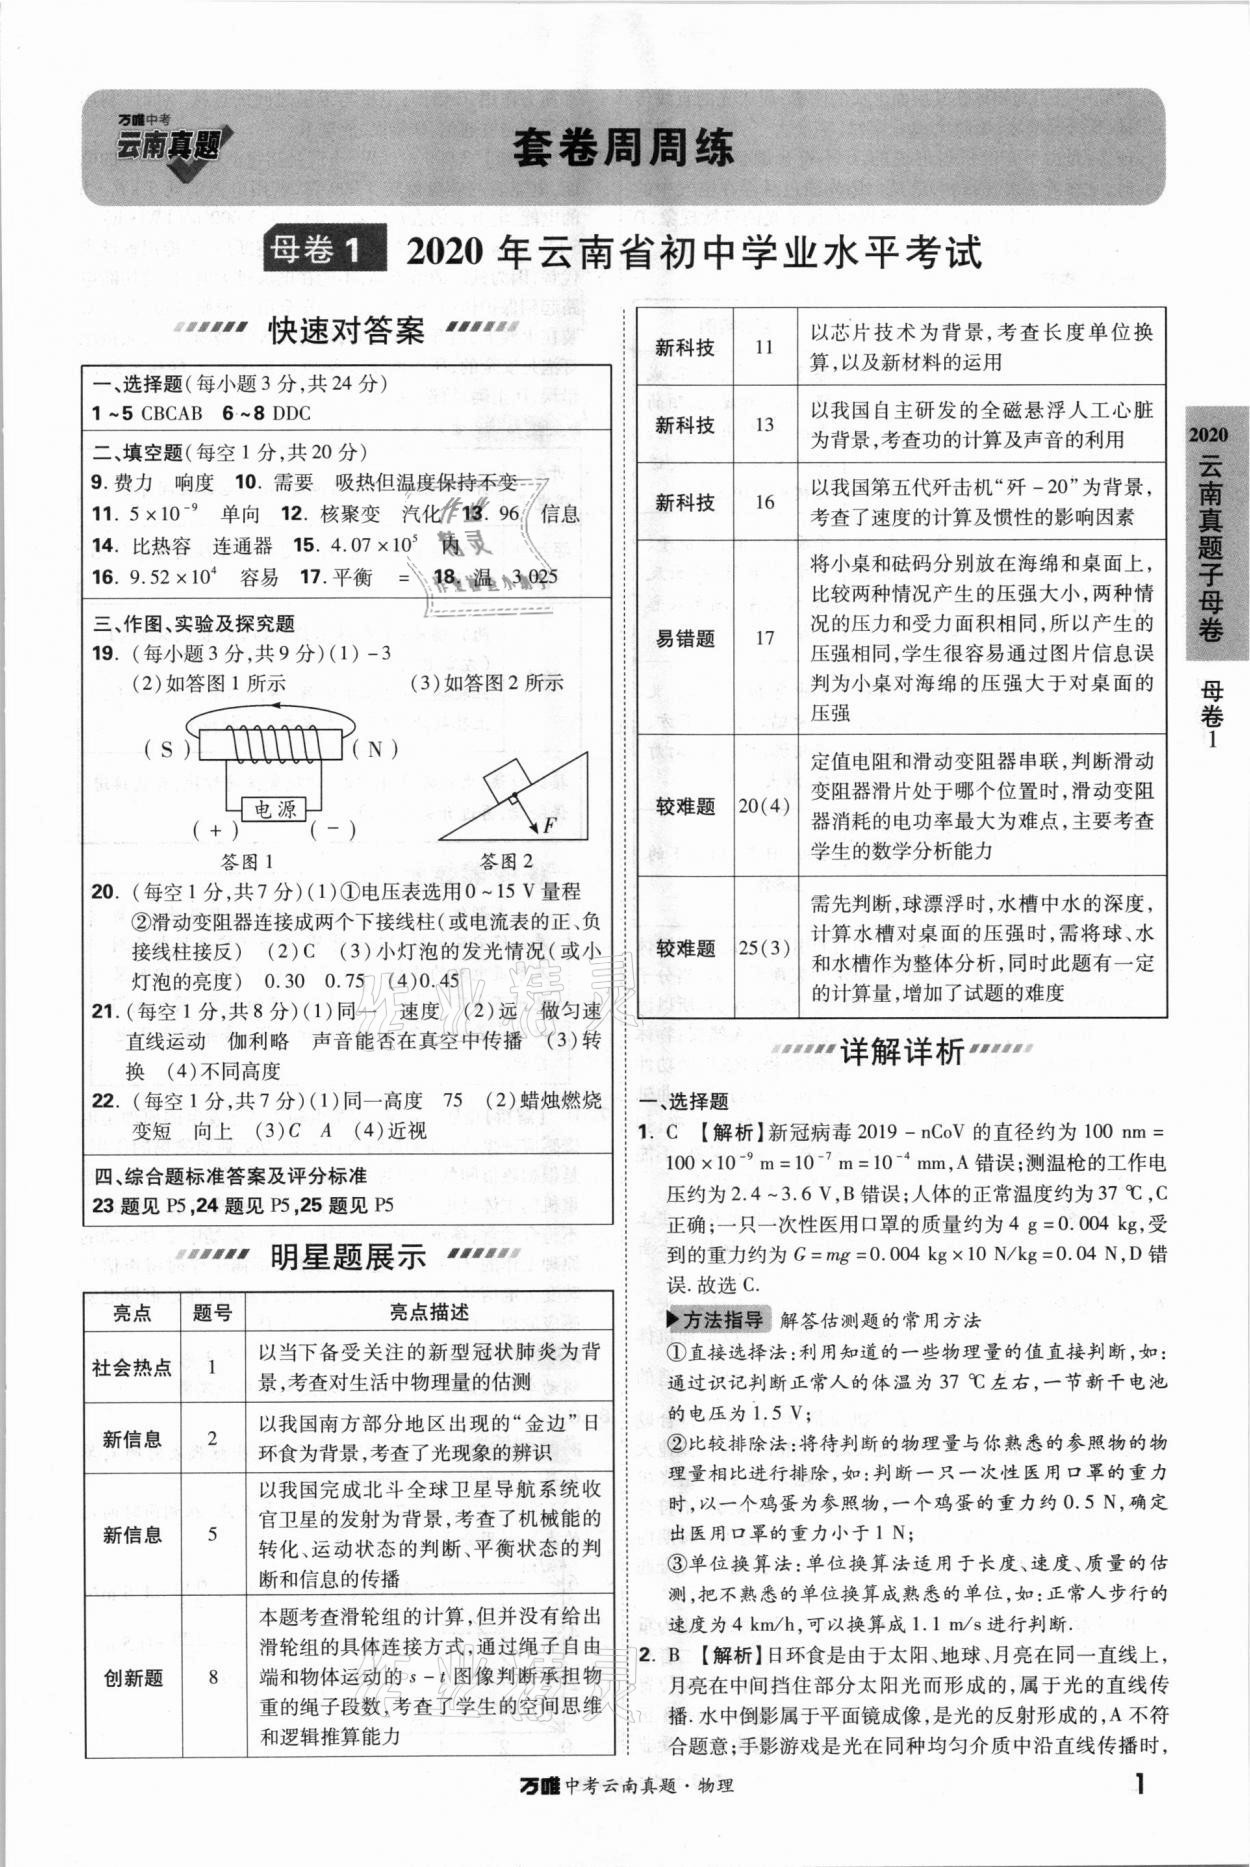 万唯中考
云南真题
套卷周周练
母卷1 2020年云南省初中学业水平考试
快速对答案
一、选择题(每小题3分,共24分)
1~5 CBCAB 6~8 DDC
二、填空题(每空1分,共20分)
9.费力 响度 10.需要 吸热但温度保持不变
11. 5×10⁻⁹ 单向 12.核聚变 汽化 13. 96 信息
14.比热容 连通器 15. 4.07×10⁵ 内
16. 9.52×10⁴ 容易 17.平衡 = 18.温 3 025
三、作图、实验及探究题
19.(每小题3分,共9分)(1)-3
(2)如答图1所示 (3)如答图2所示
(S) (N)
电源
(+) (-)
F
答图1 答图2
20.(每空1分,共7分)(1)①电压表选用0~15 V量程
②滑动变阻器连接成两个下接线柱(或电流表的正、负
接线柱接反) (2)C (3)小灯泡的发光情况(或小
灯泡的亮度) 0.30 0.75 (4)0.45
21.(每空1分,共8分)(1)同一 速度 (2)远 做匀速
直线运动 伽利略 声音能否在真空中传播 (3)转
换 (4)不同高度
22.(每空1分,共7分)(1)同一高度 75 (2)蜡烛燃烧
变短 向上 (3)C A (4)近视
四、综合题标准答案及评分标准
23题见P5,24题见P5,25题见P5
明星题展示
亮点 题号 亮点描述
社会热点 1 以当下备受关注的新型冠状肺炎为背
景,考查对生活中物理量的估测
新信息 2 以我国南方部分地区出现的“金边”日
环食为背景,考查了光现象的辨识
新信息 5 以我国完成北斗全球卫星导航系统收
官卫星的发射为背景,考查了机械能的
转化、运动状态的判断、平衡状态的判
断和信息的传播
创新题 8 本题考查滑轮组的计算,但并没有给出
滑轮组的具体连接方式,通过绳子自由
端和物体运动的s-t图像判断承担物
重的绳子段数,考查了学生的空间思维
和逻辑推算能力
新科技 11 以芯片技术为背景,考查长度单位换
算,以及新材料的运用
新科技 13 以我国自主研发的全磁悬浮人工心脏
为背景,考查功的计算及声音的利用
新科技 16 以我国第五代歼击机“歼-20”为背景,
考查了速度的计算及惯性的影响因素
易错题 17 将小桌和砝码分别放在海绵和桌面上,
比较两种情况产生的压强大小,两种情
况的压力和受力面积相同,所以产生的
压强相同,学生很容易通过图片信息误
判为小桌对海绵的压强大于对桌面的
压强
较难题 20(4) 定值电阻和滑动变阻器串联,判断滑动
变阻器滑片处于哪个位置时,滑动变阻
器消耗的电功率最大为难点,主要考查
学生的数学分析能力
较难题 25(3) 需先判断,球漂浮时,水槽中水的深度,
计算水槽对桌面的压强时,需将球、水
和水槽作为整体分析,同时此题有一定
的计算量,增加了试题的难度
详解详析
一、选择题
1. C 【解析】新冠病毒2019-nCoV的直径约为100 nm=
100×10⁻⁹ m=10⁻⁷ m=10⁻⁴ mm,A错误;测温枪的工作电
压约为2.4~3.6 V,B错误;人体的正常温度约为37 ℃,C
正确;一只一次性医用口罩的质量约为4 g=0.004 kg,受
到的重力约为G=mg=0.004 kg×10 N/kg=0.04 N,D错
误.故选C.
▶方法指导 解答估测题的常用方法
①直接选择法:利用知道的一些物理量的值直接判断,如:
通过识记判断正常人的体温为37 ℃左右,一节新干电池
的电压为1.5 V;
②比较排除法:将待判断的物理量与你熟悉的参照物的物
理量相比进行排除,如:判断一只一次性医用口罩的重力
时,以一个鸡蛋为参照物,一个鸡蛋的重力约0.5 N,确定
出医用口罩的重力小于1 N;
③单位换算法:单位换算法适用于长度、速度、质量的估
测,把不熟悉的单位换算成熟悉的单位,如:正常人步行的
速度为4 km/h,可以换算成1.1 m/s进行判断.
2. B 【解析】日环食是由于太阳、地球、月亮在同一直线上,
月亮在中间挡住部分太阳光而形成的,属于光的直线传
播.水中倒影属于平面镜成像,是光的反射形成的,A不符
合题意;手影游戏是光在同种均匀介质中沿直线传播时,
2020云南真题子母卷 母卷1
万唯中考云南真题·物理
1
作业精灵
作业精灵
作业精灵